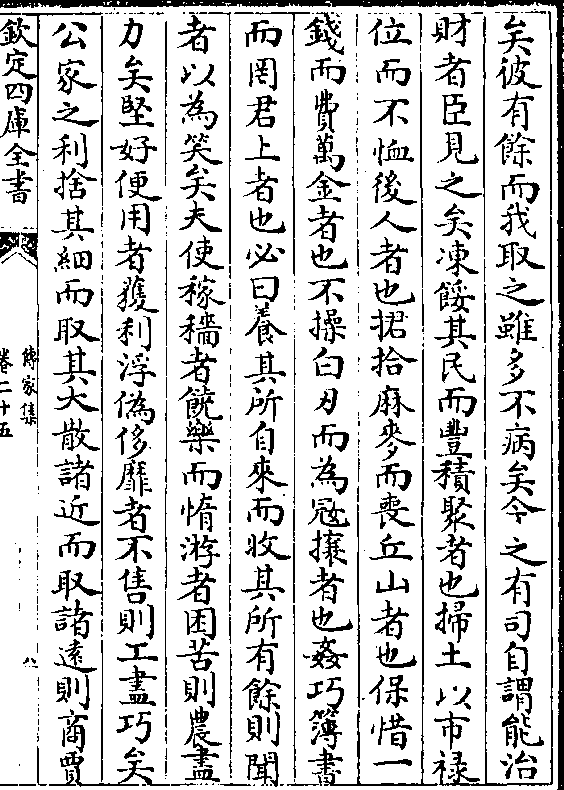 矣彼有餘而我取之雖多不病矣今之有司自謂能治
財者臣見之矣凍餒其民而豐積聚者也掃土以市祿
位而不恤後人者也捃拾麻麥而喪丘山者也保惜一
錢而費萬金者也不操白刃而為冦攘者也姦巧簿書
而罔君上者也必曰養其所自來而收其所有餘則聞
者以為笑矣夫使稼穡者饒樂而惰游者困苦則農盡
力矣堅好便用者獲利浮偽侈靡者不售則工盡巧矣
公家之利捨其細而取其大散諸近而取諸遠則商賈
欽定四庫全書
傳家集
卷二十五
八